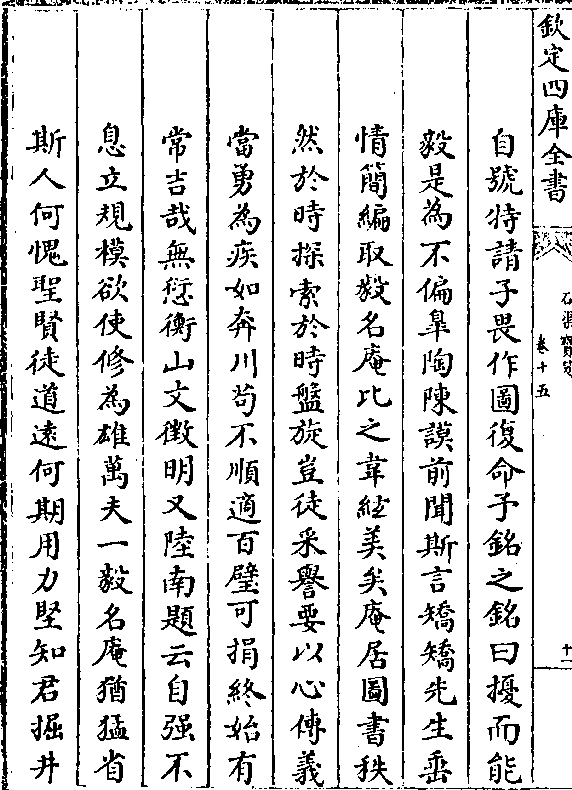 欽定四庫全書
石渠寶笈
卷十五
十一
自號特請子畏作圖復命予銘之銘曰擾而能
毅是為不偏皐陶陳謨前聞斯言矯矯先生垂
情簡編取毅名庵比之韋經美矣庵居圖書秩
然於時探索於時盤旋豈徒采譽要以心傳義
當勇為疾如奔川茍不順適百璧可捐終始有
常吉哉無愆衡山文徵明又陸南題云自强不
息立規模欲使修為雄萬夫一毅名庵猶猛省
斯人何愧聖賢徒道遠何期用力堅知君掘井